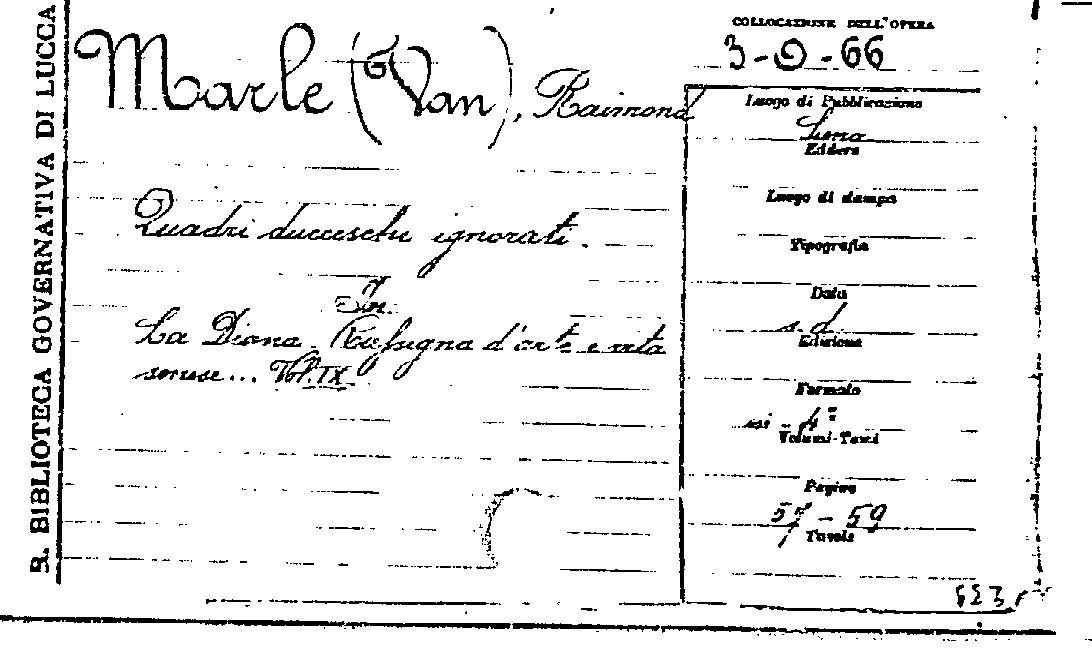 R. BIBLIOTECA GOVERNATIVA DI LUCCA
Marle (Van), Raimond
Quadri ducceschi ignorati.
In
La Diana. Rassegna d'arte e vita
senese... Vol. IX
COLLOCAZIONE DELL'OPERA
3-O-66
Luogo di Pubblicazione
Siena
Editore
Luogo di stampa
Tipografia
Data
s. d.
Edizione
Formato
in - 4°
Volumi-Tomi
Pagine
57 - 59
Tavole